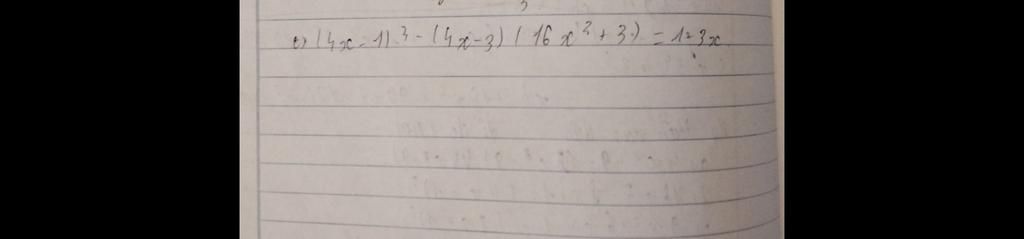 c) (4x - 1)³ - (4x - 3) (16x² + 3) = 1 - 3x